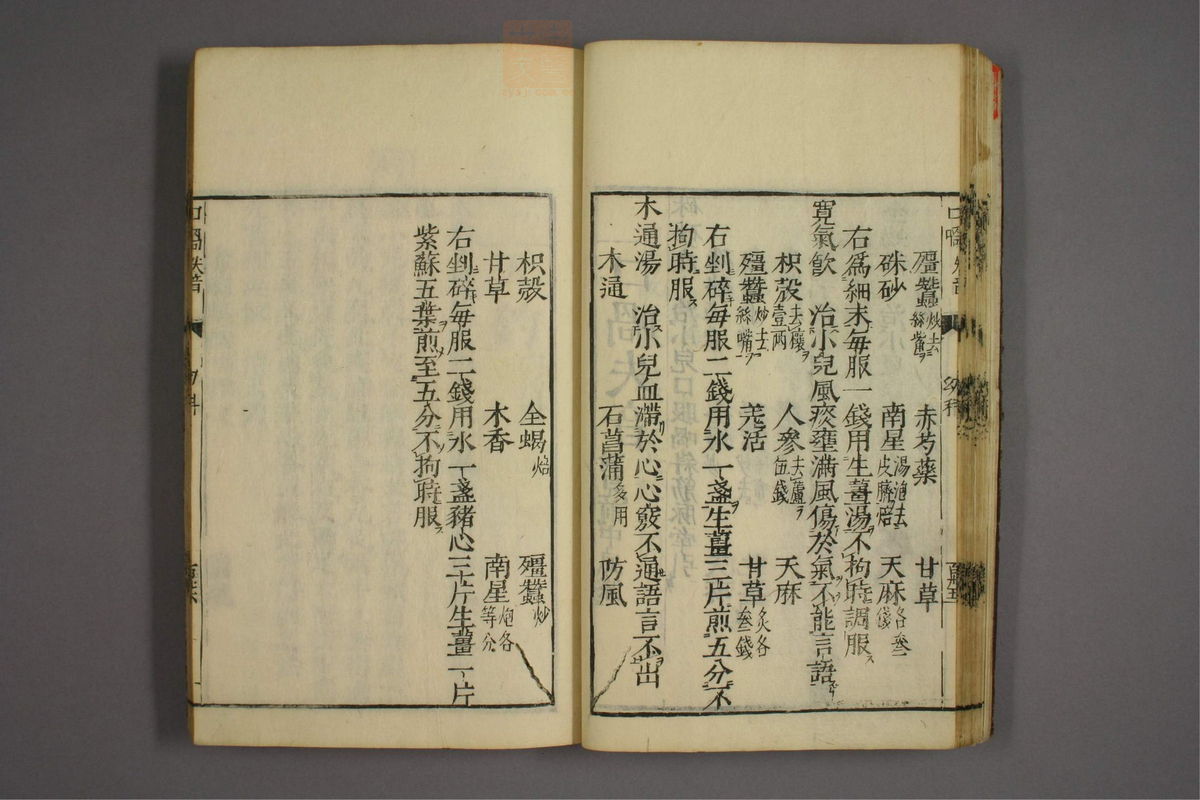 殭蠶炒去絲嘴 赤芍藥 甘草
硃砂 南星湯泡去皮臍焙 天麻各叁錢
右爲細末每服一錢用生薑湯不拘時調服
寬氣飲 治小兒風痰壅滿風傷於氣不能言語
枳殼去穰壹兩 人參去蘆伍錢 天麻
殭蠶炒去絲嘴 羌活 甘草炙各叁錢
右剉碎每服二錢用水一盞生薑三片煎五分不
拘時服
木通湯 治小兒血滯於心心竅不通語言不出
木通 石菖蒲多用 防風
枳殼 全蝎焙 殭蠶炒
甘草 木香 南星炮各等分
右剉碎每服二錢用水一盞豬心三片生薑一片
紫蘇五葉煎至五分不拘時服
口喎 幼科